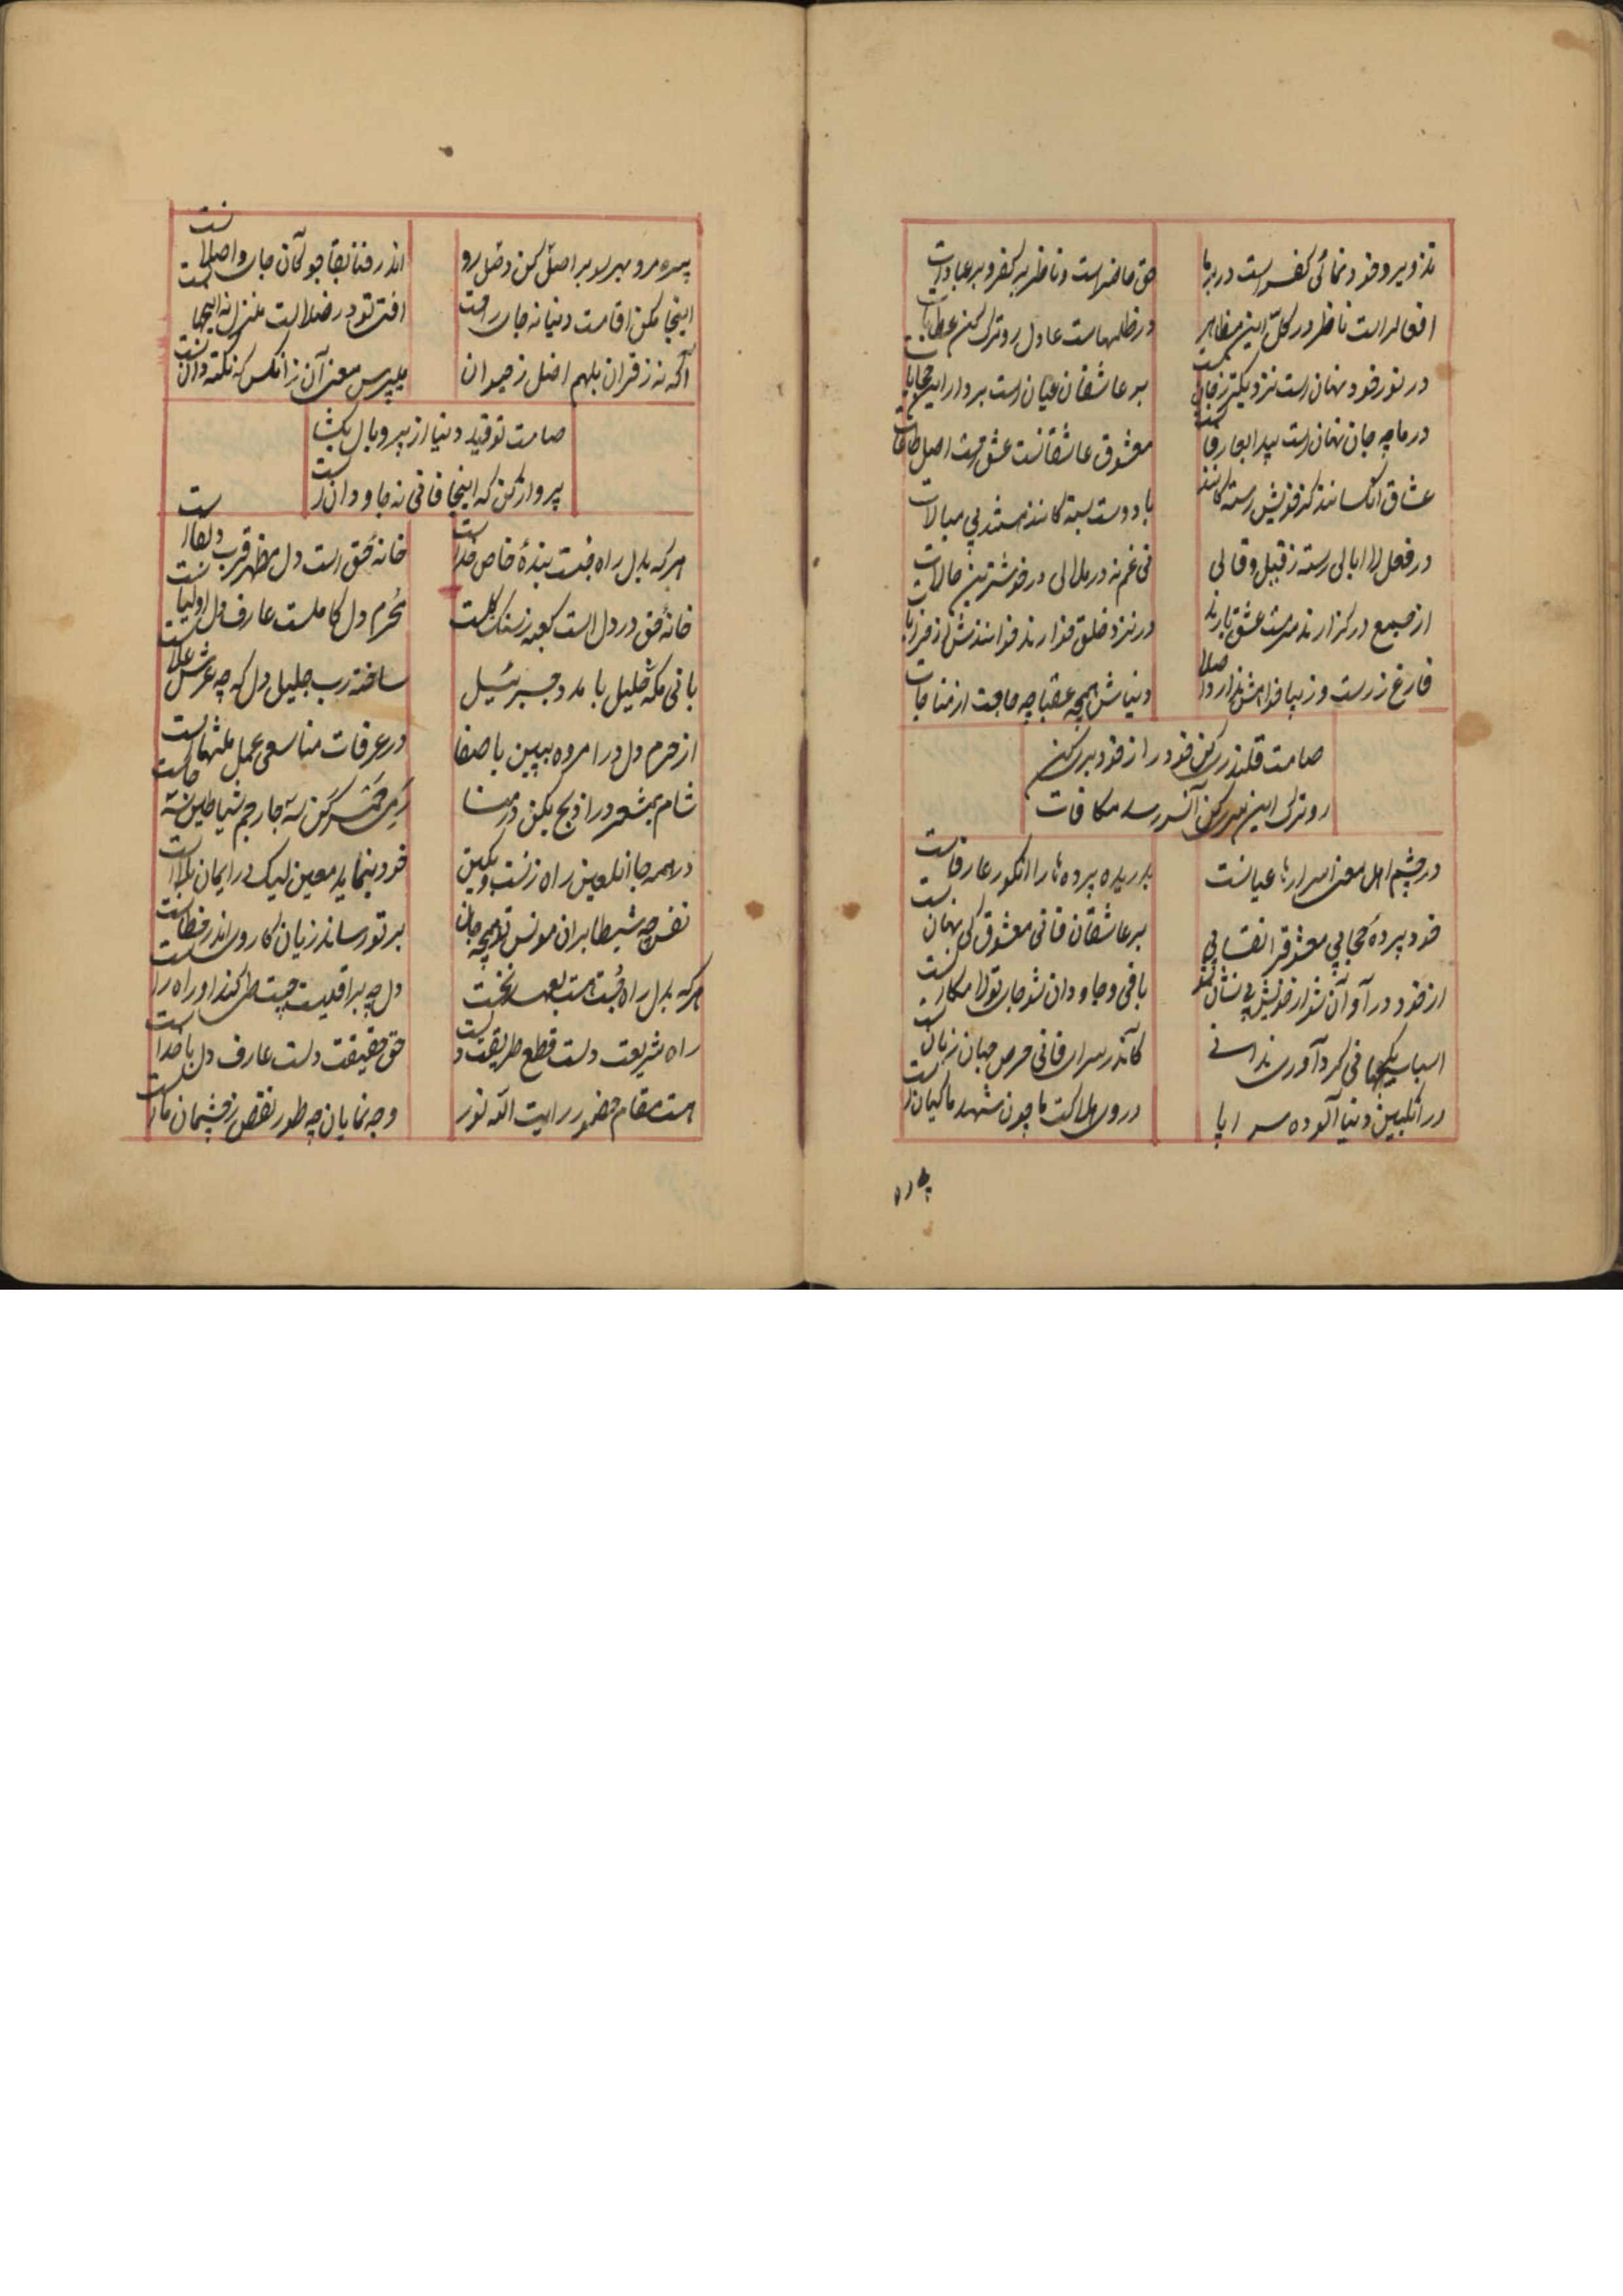 تذویر و خود نمائی کفر است در بر ما
حق حاضر است و ناظر بر کفر و بر عبادات
افعال را است ناظر در کل این مظاهر
در ظلمهاست عادل رو ترک کن
در نور خود نهان است نزدیکتر ز جان
بر عاشقان عیان است بردار این حجابات
در ما چه جان نهان است پیدا بعارفانست
معشوق عاشقانست عشق است اصل طاعات
عشاق آنکسانند کز خویش رسته‌کانند
با دوست بسته‌کانند هستند بی مبالات
در فعل لا ابالی رسته ز قیل و قالی
نی غم نه در ملالی در خوشترین حالات
از جمیع در کنارند مست عشق یارند
در نزد خلق خوارند
فارغ ز زشت و زیبا
دنیاش همچه عقبا چه حاجت از مناجات
صامت قلندری کن خود را ز خود بری کن
رو ترک این کن آنسر رسد مکافات
در چشم اهل معنی اسرارها عیانست
بدریده پرده‌ها را آنکور عارفانست
خود پرده حجابی معشوق را نقابی
بر عاشقان فانی معشوق کی نهانست
از خود در آ و آن شو از خویش بی نشان شو
باقی و جاودان شو جای تو لامکانست
اسباب یکجهانی گرد آوری ندانی
کاندر سرای فانی حرص جهان زیانست
در انگبین دنیا آلوده سراپا
در وی هلاکت ما چون شهد ماکیانست
پیره
پیره مرو بهر سو بر اصل کن وصل رو
اندر فنا بقا جو کآن جای واصلانست
اینجا مکن اقامت دنیا نه جای راحت
افتی تو در ضلالت منزل نه اینجهانست
آگه نه ز قران بلهم اضل ز حیوان
میپرس معنی آن ز آنکس که نکته دانست
صامت تو قید دنیا از پر و بال بگشا
پرواز کن که اینجا فانی نه جاودانست
هر که بدل راه جست بندهٔ خاص خداست
خانهٔ حق است دل مظهر قرب و لقاست
خانهٔ حق در دل است کعبه ز سنگ و گلست
محرم دل کاملست عارف دل اولیاست
بانی مکه خلیل با مدد جبرئیل
ساخته رب جلیل دل که چه عرش علاست
از حرم دل در آ مروه ببین با صفا
در عرفات منا سعی عمل
شام بمشعر در آ ذبح بکن در منا
رمی سه جا رجم شیاطین
در همه جا آنلعین راه زنست و بکین
خود بنماید معین لیک در ایمان بلاست
نفس چه شیطا بران مونس تو همچه جان
بر تو رساند زیان کار وی اندر خطاست
هر که بدل راه جست هست بعهد نخست
دل چه براقیست چست طی کند او راه راست
راه شریعت دلست قطع طریقت دلست
حق حقیقت دلست عارف دل با خداست
هست مقام حضور رایت الله نور
وجه نمایان چه طور نقص ز چشمان ماست